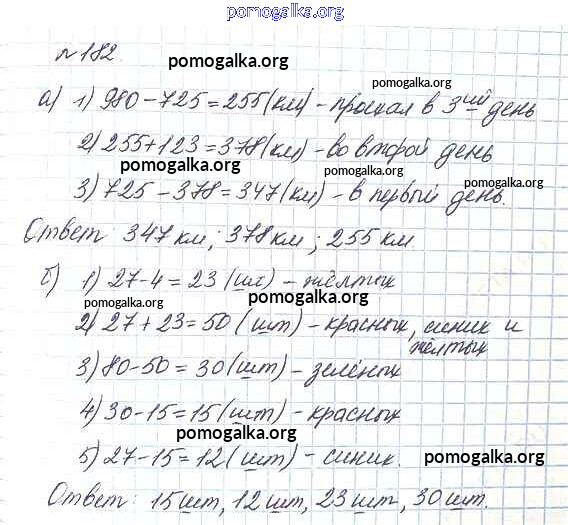 pomogalka.org
№182. pomogalka.org
pomogalka.org
а) 1) 980-725=255(км) - проехал в 3ий день
2) 255+123=378(км) - во второй день
pomogalka.org pomogalka.org
3) 725-378=347(км) - в первый день.
pomogalka.org pomogalka.org
Ответ: 347 км; 378 км; 255 км.
б) 1) 27-4=23 (шт) - жёлтых
pomogalka.org pomogalka.org
2) 27+23=50 (шт) - красных, синих и
жёлтых
3) 80-50=30 (шт) - зелёных
4) 30-15=15 (шт) - красных
pomogalka.org
5) 27-15=12 (шт) - синих. pomogalka.org
Ответ: 15 шт, 12 шт, 23 шт, 30 шт.